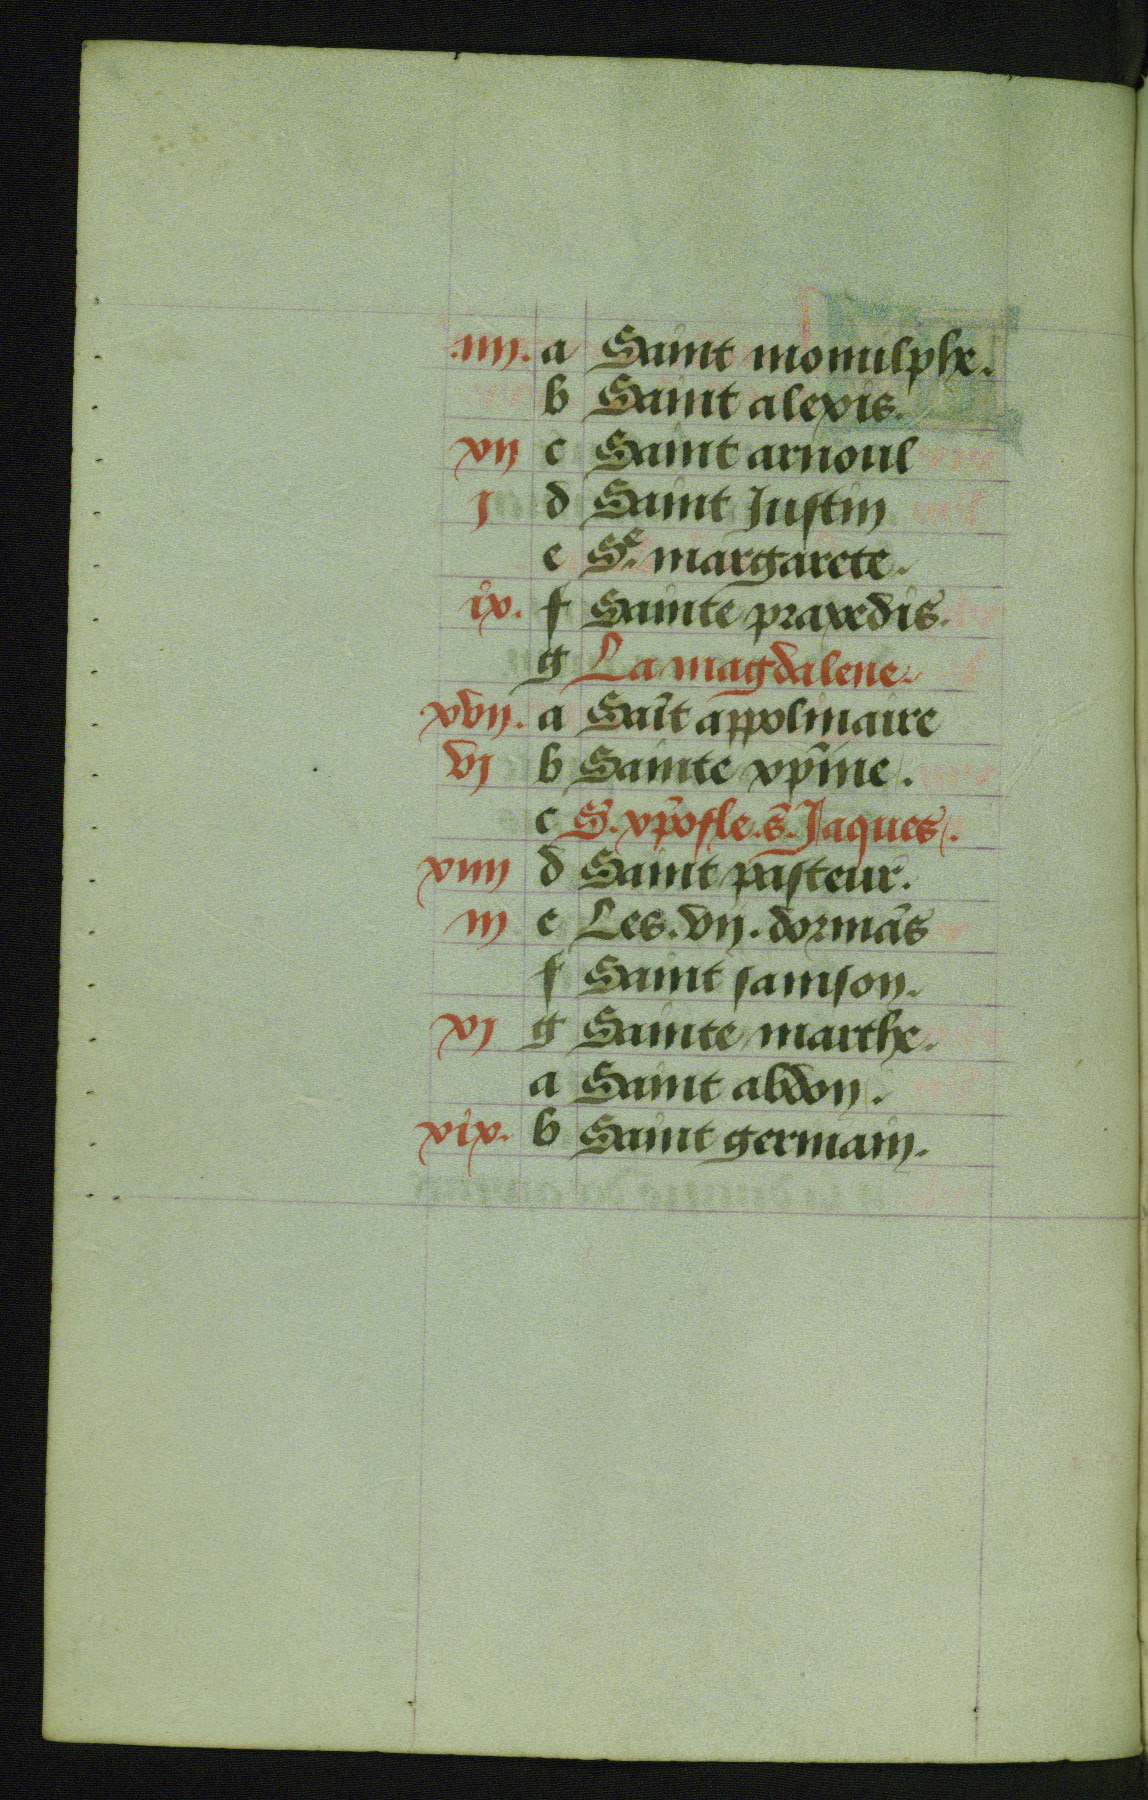 .iiij. a Saint monulphe.
b Saint alexis.
vij c Saint arnoul
j d Saint Justin
e Sᵉ. margarete.
ix. f Sainte praxedis.
g La magdalene.
xvij. a Sait̄ appolinaire
vj b Sainte xp̄ine.
c S. xp̄ofle. s̄. Jaques.
xiiij d Saint pasteur.
iij e Les .vij. dormās
f Saint samson.
xj g Sainte marthe.
a Saint abdon.
xix. b Saint germain.